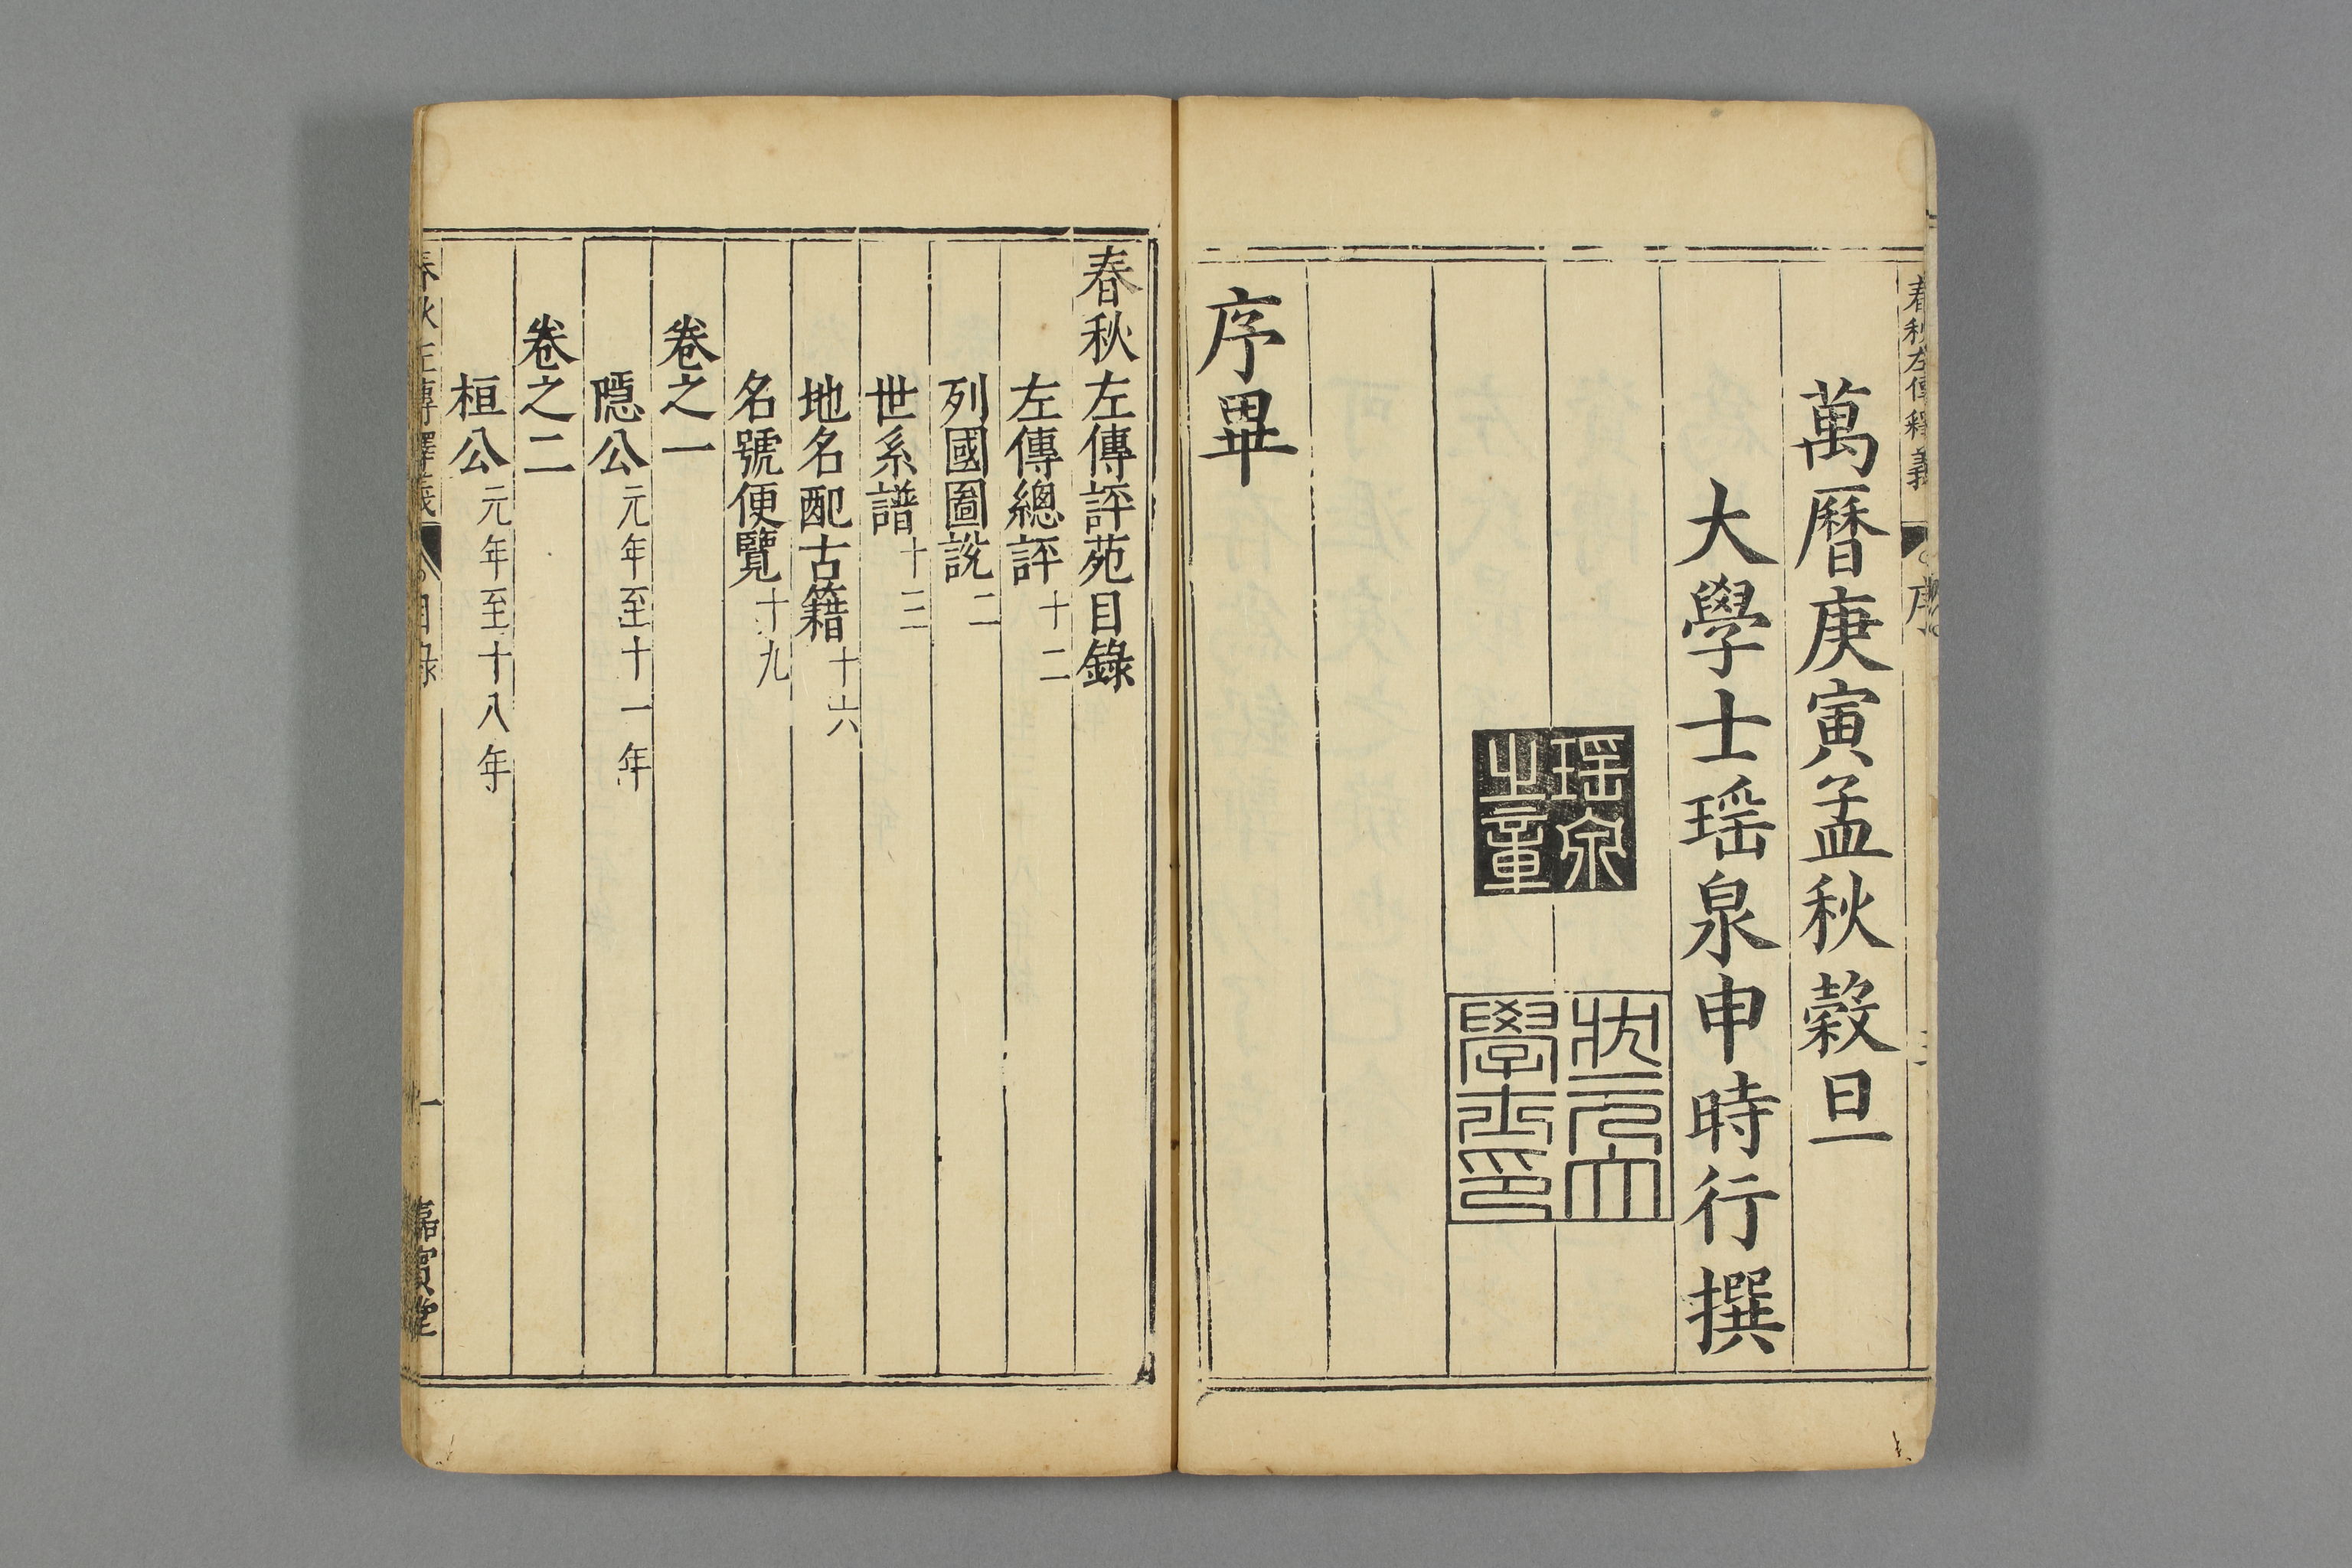 春秋左傳釋義
序
萬曆庚寅孟秋穀旦
大學士瑶泉申時行撰
瑶泉
之章
狀元大
學士印
序畢
春秋左傳評苑目錄
左傳總評十二
列國圖說二
世系譜十三
地名配古籍十六
名號便覽十九
卷之一
隱公元年至十一年
卷之二
桓公元年至十八年
春秋左傳釋義
目錄
一
嘉賓堂